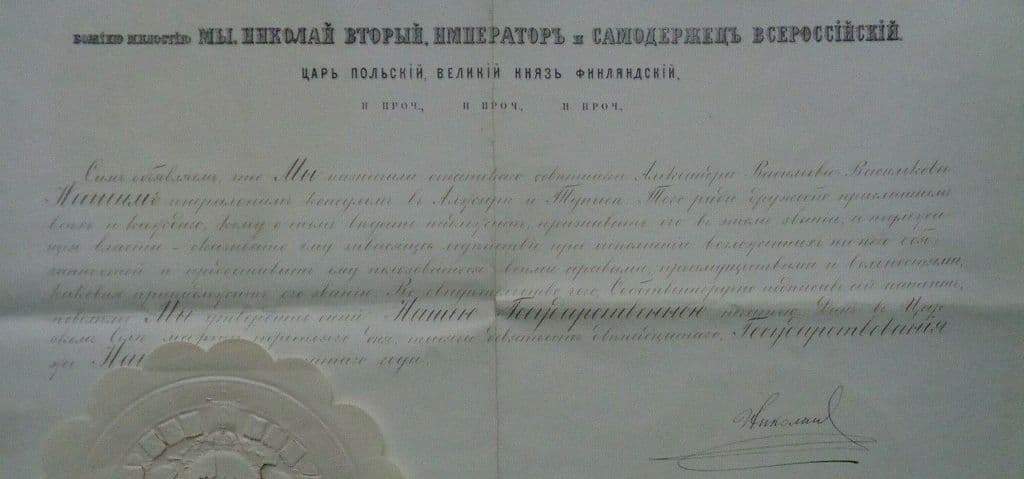 БОЖІЮ МИЛОСТІЮ МЫ, НИКОЛАЙ ВТОРЫЙ, ИМПЕРАТОРЪ и САМОДЕРЖЕЦЪ ВСЕРОССІЙСКІЙ,
ЦАРЬ ПОЛЬСКІЙ, ВЕЛИКІЙ КНЯЗЬ ФИНЛЯНДСКІЙ,
и проч., и проч., и проч.,
Симъ объявляемъ, что Мы назначили статскаго совѣтника Александра Васильева Василькова
Нашимъ генеральнымъ консуломъ въ Алжирѣ и Тунисѣ. Того ради дружески приглашаемъ
всѣхъ и каждаго, кому о семъ вѣдать надлежитъ, признавать его въ этомъ званіи, а подлежа-
щія власти – оказывать ему содѣйствіе при исполненіи возложенныхъ на него обя-
занностей и предоставить ему пользоваться всѣми правами, преимуществами и вольностями,
каковыя принадлежатъ его званію. Въ свидѣтельство чего, Собственноручно подписавъ сей патентъ,
повелѣли Мы утвердить оный Нашею Государственною печатью. Данъ въ Цар-
скомъ Селѣ марта третьяго дня, тысяча девятьсотъ двѣнадцатаго, Государствованія
же года.
Николай